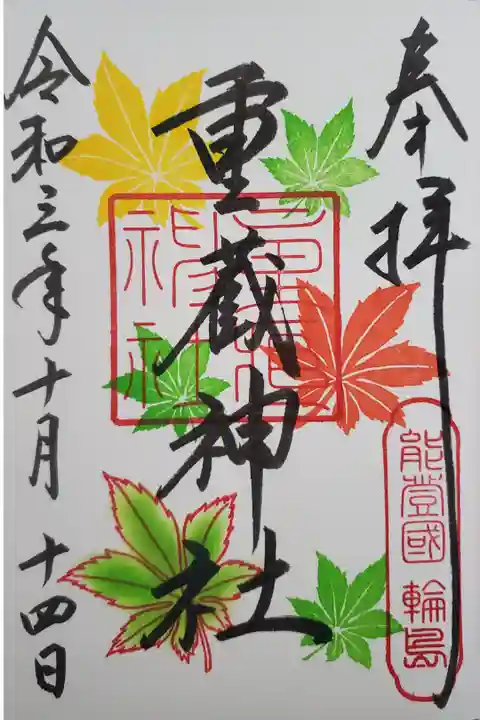 奉拝
能登國 輪島
重蔵神社
令和三年十月 十四日